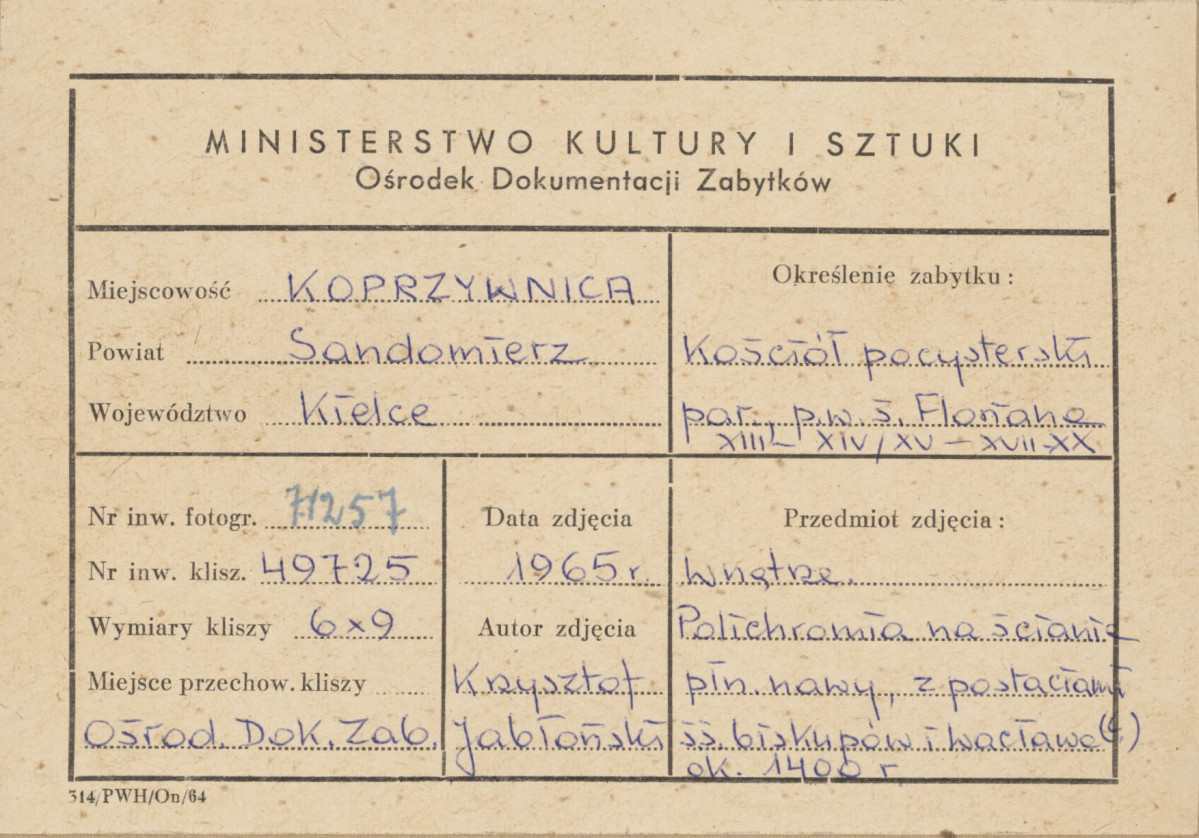 MINISTERSTWO KULTURY I SZTUKI
Ośrodek Dokumentacji Zabytków
Miejscowość KOPRZYWNICA
Powiat Sandomierz
Województwo Kielce
Określenie zabytku:
Kościół pocysterski
par., p.w. ś. Floriana
XIII – XIV/XV – XVII-XX
Nr inw. fotogr. 71257
Nr inw. klisz. 49725
Wymiary kliszy 6x9
Miejsce przechow. kliszy
Ośrod. Dok. Zab.
Data zdjęcia
1965 r.
Autor zdjęcia
Krzysztof
Jabłoński
Przedmiot zdjęcia:
Wnętrze.
Polichromia na ścianie
płn. nawy, z postaciami
śś. biskupów i Wacława(?)
ok. 1400 r
314/PWH/On/64